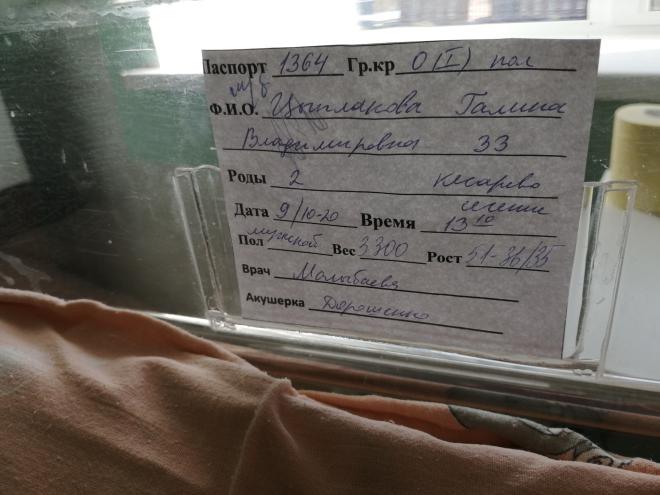 Паспорт 1364 Гр.кр 0(I) пол
Ф.И.О. Цыплакова Галина
Владимировна 33
Роды 2 кесарево
сечение
Дата 9/10-20 Время 13 10
Пол мужской Вес 3300 Рост 51-36/35
Врач Малыбаева
Акушерка Дорошенко